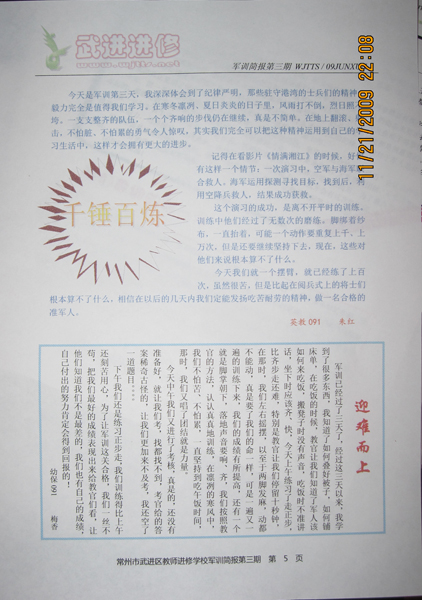 武进进修
www.wjjx.net
军训简报第三期 WJTTS / 09JUNXUN
11/21/2009 22:08
今天是军训第三天，我深深体会到了纪律严明，那些驻守港湾的士兵们的精神
毅力完全是值得我们学习，在寒冬凛冽、夏日炎炎的日子里，风雨打不倒，烈日照
垮，一支支整齐的队伍，一个个齐响的步伐仍在继续，真是不简单。在地上翻滚、
击，不怕脏、不怕累的勇气令人惊叹，其实我们完全可以把这种精神运用到自己的
习生活中，这样才会拥有更大的进步。
千锤百炼
记得在看影片《情满湘江》的时候，好
有这样一个情节：一次演习中，空军与海军
合救人，海军运用探测寻找目标，找到后，利
用空降兵救人，结果成功获救。
这个演习的成功，是离不开平时的训练，
训练中他们经过了无数次的磨练。脚绑着纱
布，一直抬着，可能一个动作要重复上千、上
万次，但是还要继续坚持下去，现在，这些对
他们来说根本算不了什么。
今天我们就一个摆臂，就已经练了上百
次，虽然很苦，但是比起在阅兵式上的将士们
根本算不了什么，相信在以后的几天内我们定能发扬吃苦耐劳的精神，做一名合格的
准军人。
英教 091 朱红
迎难而上
军训已经过了三天了，经过这三天以来，我学
到了很多东西，我知道了如何叠好被子，如何铺
床单，在吃饭的时候，教官让我们知道了军人该
如何来吃饭，搬凳子时没有声音，吃饭时不准讲
话，坐下时应该齐、快，今天上午练习了走正步，
比齐步走还难，特别是教官让我们停留十秒钟，
在那时，我们左右摇摆，以至于两脚发麻，动都
不能动，真是要了我们的命一样，可是一遍又一
遍的训练下来，我们的成绩有所提高，还有一个
就是脚掌朝下，落地声音要响、齐，我们按照教
官的方法，认认真真地训练，在凛冽的寒风中，
我们不怕苦、不怕累，一直坚持到吃午饭时间，
那时，我们又唱了团结就是力量。
今天中午我们又进行了考核，真是的，还没有
准备好，就让我们考，找都找不到，考官给的答
案稀奇古怪的，让我们更加来不及考，我还空了
一道题目……
下午我们还是练习正步走，我们训练得比上午
还刻苦用心，为了让军训这关合格，我们一丝不
苟，把我们最好的成绩表现出来给教官们看，让
他们知道我们不是最差的，我们也有自己的成绩，
自己付出的努力肯定会得到回报的！
幼保 091 梅香
常州市武进区教师进修学校军训简报第三期 第 5 页